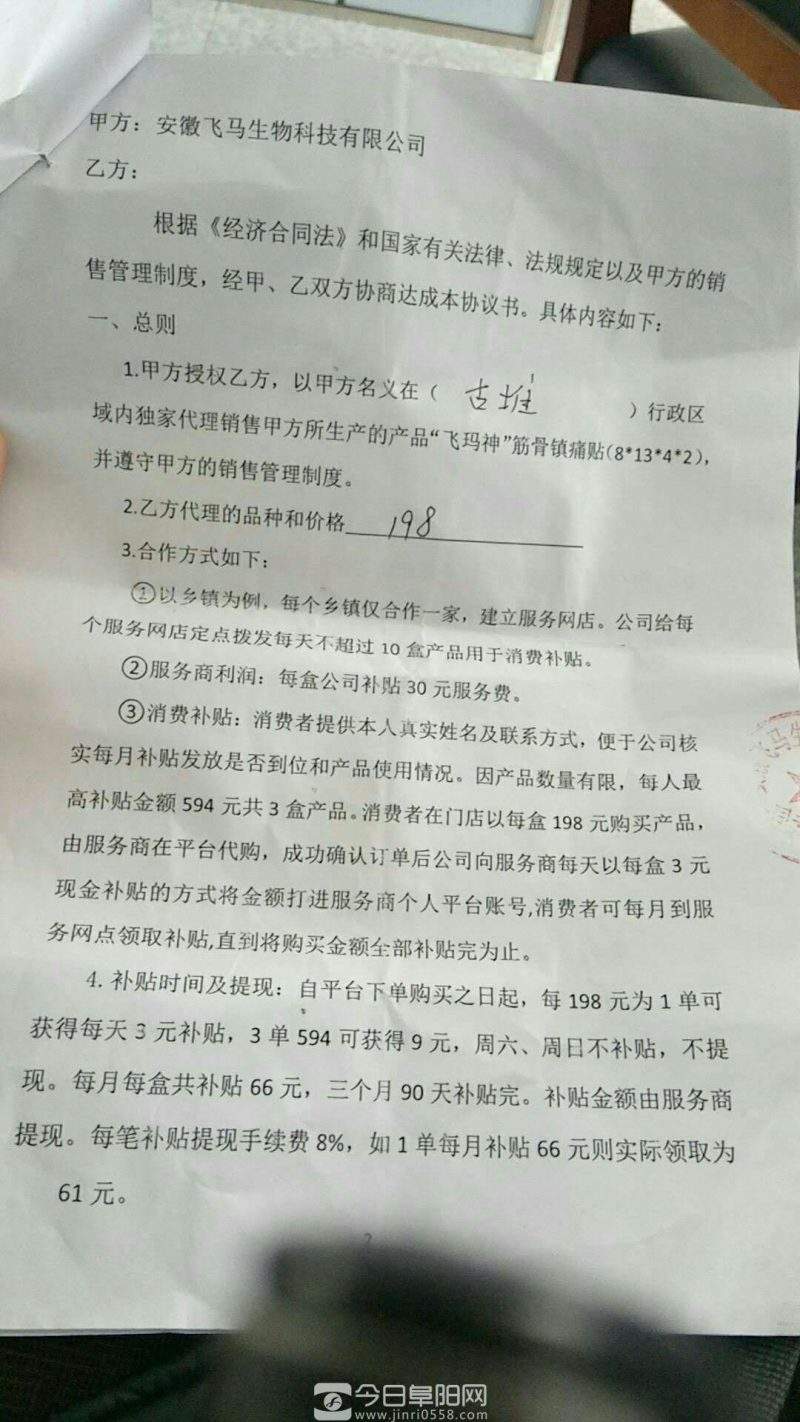 甲方：安徽飞马生物科技有限公司
乙方：
根据《经济合同法》和国家有关法律、法规规定以及甲方的销
售管理制度，经甲、乙双方协商达成本协议书。具体内容如下：
一、总则
1.甲方授权乙方，以甲方名义在（ 古堆 ）行政区
域内独家代理销售甲方所生产的产品“飞玛神”筋骨镇痛贴（8*13*4*2），
并遵守甲方的销售管理制度。
2.乙方代理的品种和价格 198
3.合作方式如下：
①以乡镇为例，每个乡镇仅合作一家，建立服务网店。公司给每
个服务网店定点拨发每天不超过 10 盒产品用于消费补贴。
②服务商利润：每盒公司补贴 30 元服务费。
③消费补贴：消费者提供本人真实姓名及联系方式，便于公司核
实每月补贴发放是否到位和产品使用情况。因产品数量有限，每人最
高补贴金额 594 元共 3 盒产品。消费者在门店以每盒 198 元购买产品，
由服务商在平台代购，成功确认订单后公司向服务商每天以每盒 3 元
现金补贴的方式将金额打进服务商个人平台账号,消费者可每月到服
务网点领取补贴,直到将购买金额全部补贴完为止。
4. 补贴时间及提现：自平台下单购买之日起，每 198 元为 1 单可
获得每天 3 元补贴，3 单 594 可获得 9 元，周六、周日不补贴，不提
现。每月每盒共补贴 66 元，三个月 90 天补贴完。补贴金额由服务商
提现。每笔补贴提现手续费 8%，如 1 单每月补贴 66 元则实际领取为
61 元。
2
今日阜阳网
www.jinri0558.com